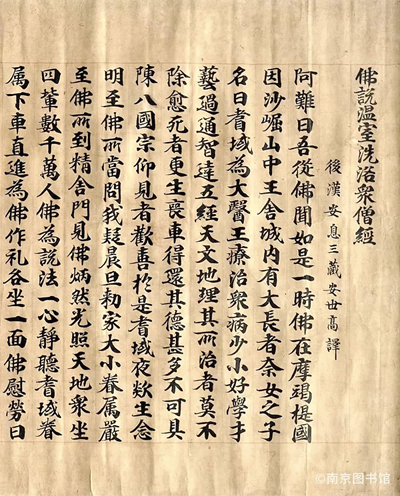 佛說温室洗浴衆僧經
後漢安息三藏安世高譯
阿難曰吾從佛聞如是一時佛在摩竭提國
因沙崛山中王舍城内有大長者奈女之子
名曰耆域為大醫王療治衆病少小好學才
藝過通智達五經天文地理其所治者莫不
除愈死者更生喪車得還其德甚多不可具
陳八國宗仰見者歡喜於是耆域夜欻生念
明至佛所當問我疑晨旦勑家大小眷属嚴
至佛所到精舍門見佛炳然光照天地衆坐
四輩數千萬人佛為說法一心靜聽耆域眷
属下車直進為佛作礼各坐一面佛慰勞曰
©南京图书馆